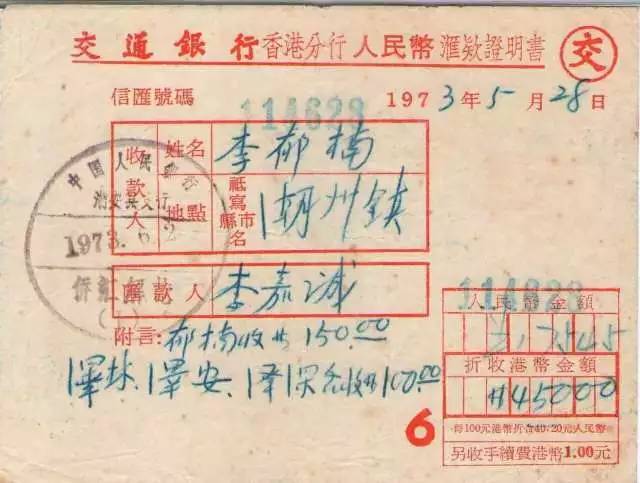 交通銀行香港分行人民幣滙欵證明書 交
信匯號碼 1973年5月28日
114623
收款人 姓名 李郁楠
地點 祗寫縣市名 潮州鎮
中国人民銀行
1973.6.2
滙款人 李嘉诚
附言: 郁楠收廿150.00
泽林、泽安、泽深各收廿100.00
114623
人民幣金額
折收港幣金額
廿45000
6
每100元港幣折合40.20元人民幣
另收手續費港幣1.00元